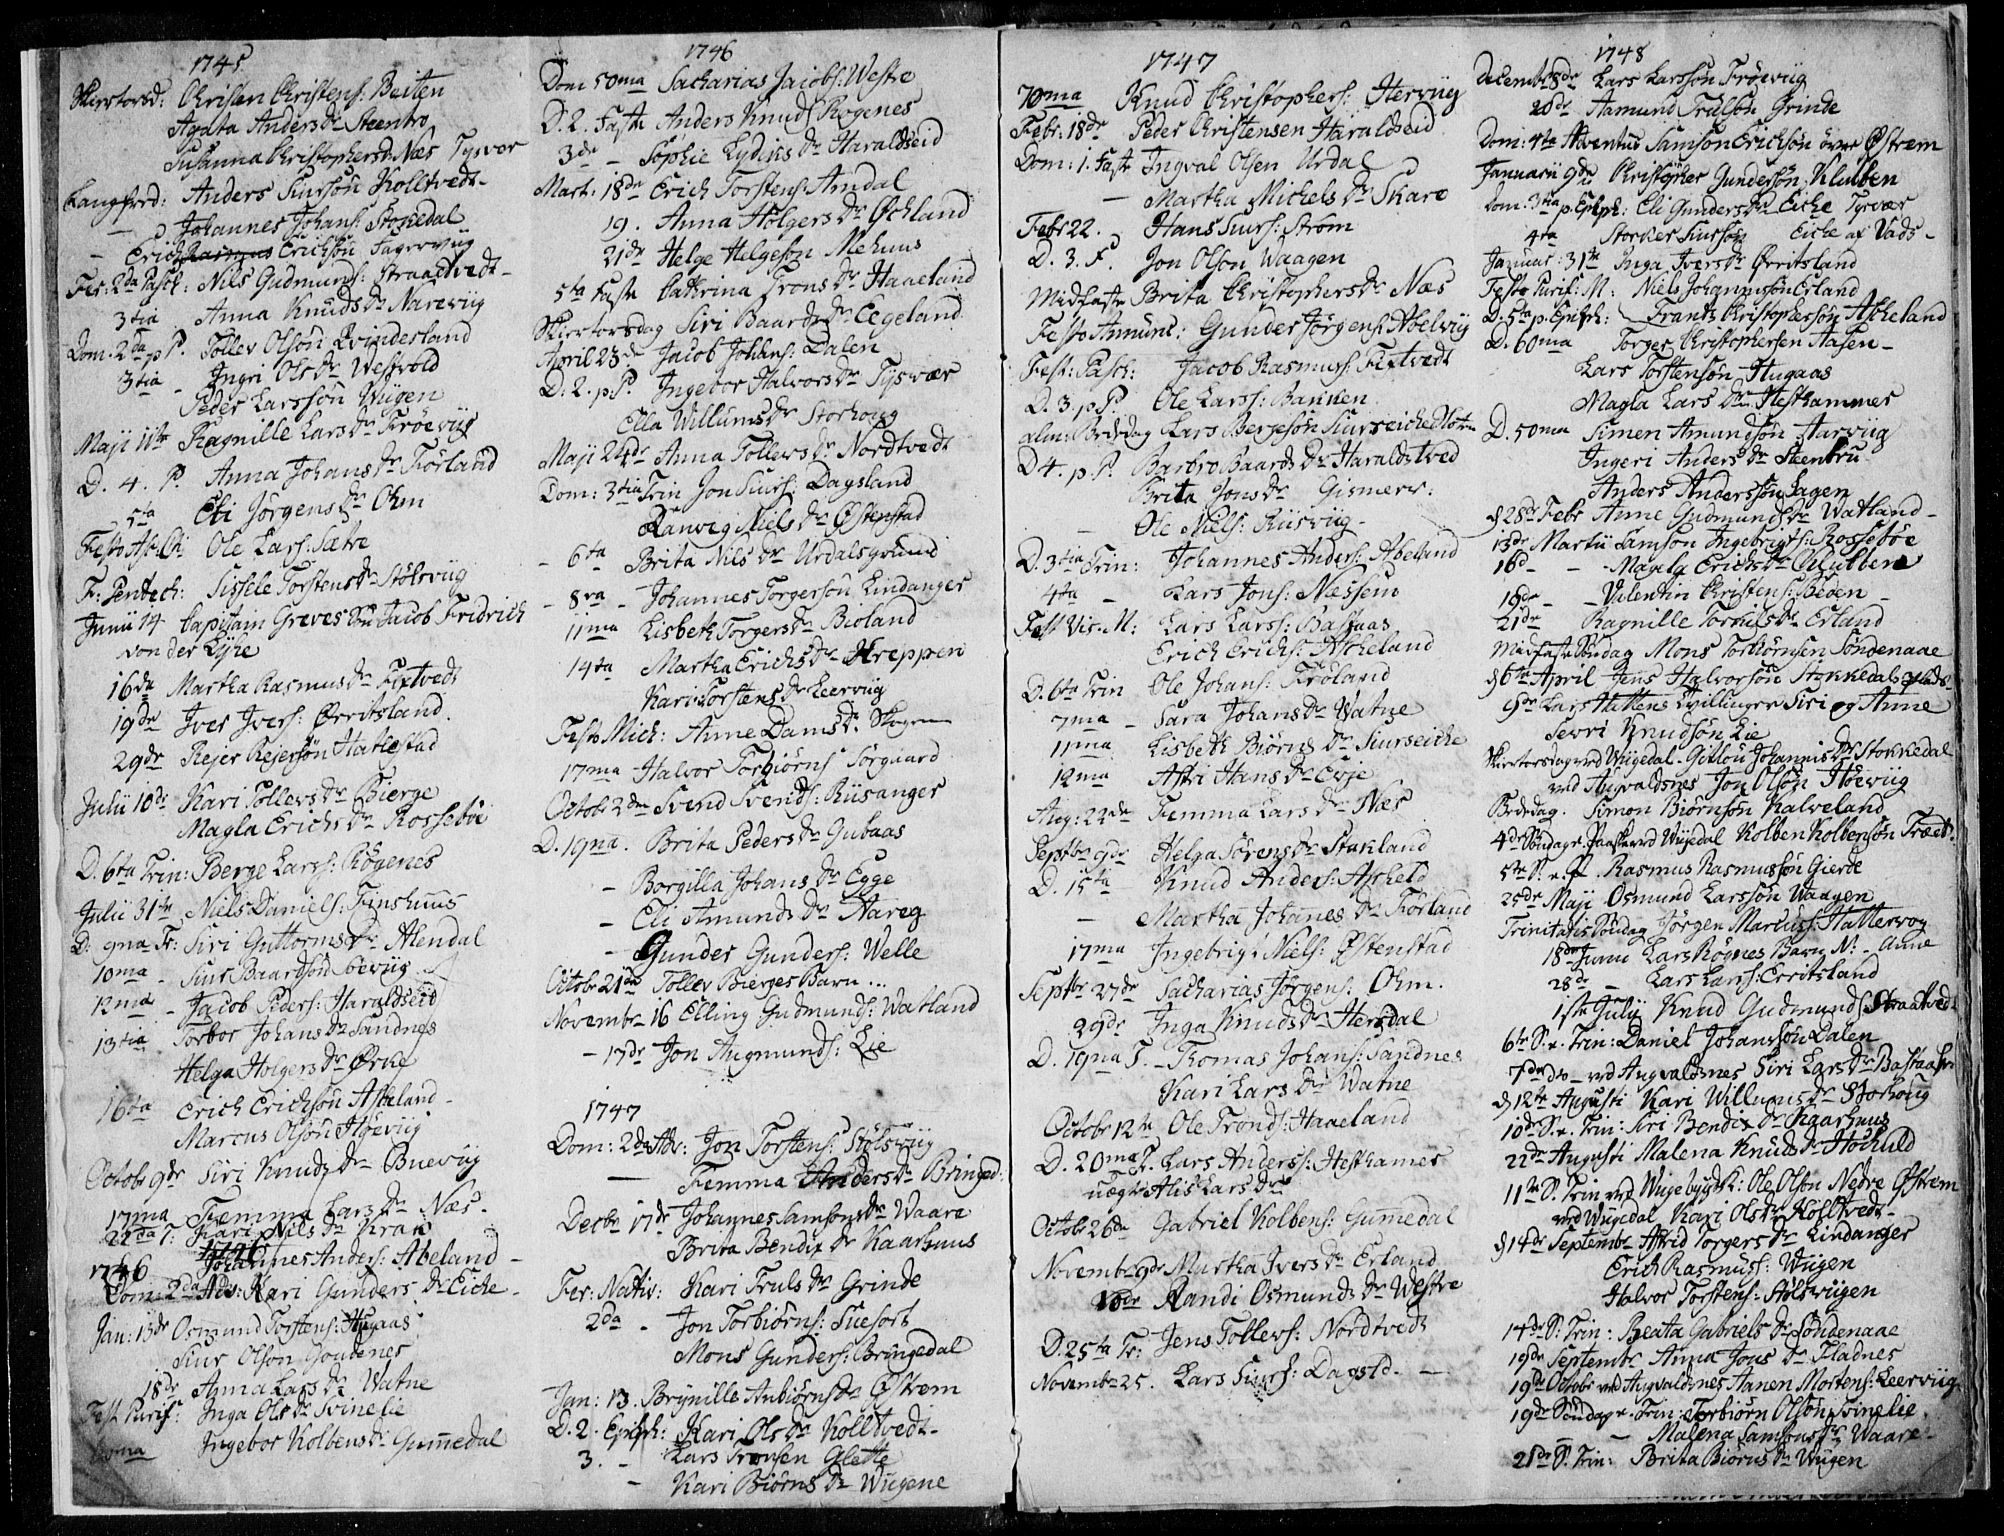 1745
Skiertorsd: Christen Christens: Beiten
Agata Anders Dr Steenbro
Susanna Christophersdr Næs Tysvær
Langfred: Anders Siursön Kolltvedt
— Johannes Johans: Stokedal
— Erich Erichsön Fagerviig
Fer: 2da Pasch: Nils Gudmuns: Straadtvedt
3tia Anna Knuds Dr Nareviig
Dom. 2da p P. Tollev Olsön Qvindesland
3tia — Ingri Ols Dr Westvold
Peder Larssön Wiigen
Maji 11te Ragnille Lars Dr Fröeviig
D. 4. P Anna Johans Dr Förland
5ta Eli Jörgens Dr Ohm
Festo Ole Lars: Sætre
F: Pentech: Sissele Torstens Dr Stölsviig
Junii 14 Capitain Greves Sön Jacob Fridrich
von der Lÿhe
16de Martha Rasmus Dr Fixtvedt
19de Iver Ivers: Ørritsland
29de Rejer Rejersön Hatlestad
Julii 10de Kari Tollevs Dr Bierge
Magla Erichs Dr Rosseböe
D. 6ta Trin: Berge Lars: Rögenes
Julii 31te Niels Daniels: Tinshuus
D: 9na Tr: Siri Guttorms Dr Alendal
10ma — Siur Baardsön Soeviig
12ma — Jacob Peders: Haraldseid
13tia Torbor Johans Dr Sandnes
Helga Holgers Dr Ørne
16ta Erich Erichsön Askeland
Marcus Olsön Höeviig
Octobr 9de Siri Knuds Dr Bueviig
17ma Femma Lars Dr Næs
22da T: Kari Nils Dr Krak
1746 Johannes Anders: Abeland
Dom 2da Adv: Kari Gunders Dr Eiche
Jan: 13de Osmund Torstens: Hugaas
Siur Olson Goudenes
18de Anna Lars Dr Watne
Fest Purif: Inga Ols Dr Svinelie
Ingebor Kolbens Dr Gumedal
1746
Dom 50ma Sacharias Jacobs: Westre
D. 2. Faste Anders Knuds Rogenes
3de — Sophie Lydiks Dr Haraldseid
Mart. 18de Erich Torstens: Amdal
19. Anna Holgers Dr Øchland
21de Helge Helgeson Mehuus
5te Faste Cathrina Trons Dr Haaeland
Skiertorsdag Siri Baards Dr Eegeland
April 23de Jacob Johans: Dalen
D. 2. p. P. Ingebor Halvors Dr Tysvær
Ella Willums Dr Storhoug
Maji 24de Anna Tollevs Dr Nordtvedt
Dom: 3tia Trin Jon Siurs: Dagsland
Ranveg Niels Dr Østenstad
— 6ta — Brita Nils Dr Urdalsgrund
— 8va — Johannes Torgersön Lindanger
11ma Lisbeth Torgers Dr Bioland
14ta Martha Erichs Dr Kreppen
Kari Torstens Dr Leerviig
Festo Mich: Anne Dams Dr Skogen
17ma Halvor Torbiörns Sörgaard
Octobr 2de Svend Svends: Riisanger
D. 19na. Brita Peders Dr Gubaas
— Borgilla Johans Dr Egge
— Eli Amunds Dr Aareg
— Gunder Gunders: Welle
Octobr 21de Tollev Bierges Barn ...
Novembr 16 Elling Gudmunds: Watland
— 17de Jon Augmunds: Lie
1747
Dom: 2da Adv: Jon Torstens: Stölsviig
— Femma Anders Dr Bringed:
Decbr 17de Johannes Samsons Dr Waare
Brita Bendix Dr Kaarhuus
Fer: Nativ: Kari Truls Dr Grinde
2da — Jon Torbiörns: Suesort
Mons Gunders: Bringedal
Jan: 13. Brÿnille Anbiörns Dr Østrem
D. 2. Epiph: Kari Ols Dr Kolltvedt
3. — Lars Tronsen Glette
— Kari Biörns Dr Wiigene
1747
70ma Knud Christophers: Herviig
Febr: 18de Peder Christensen Haraldseid
Dom: 1. Fast Ingval Olsen Urdal
— Martha Michels Dr Skare
Febr 22. Hans Siurs: Ström
D. 3. F. Jon Olson Waagen
Midfaste Brita Christophers Dr Næs
Festo Anunt: Gunder Jörgens: Aboelviig
Fest: Pasch: Jacob Rasmuss: Fixtvedt
D. 3 p P. Ole Larss: Banken
alm: Bededag Lars Bergesön Siurseiche
D 4. p. P. Barbro Baards Dr Haraldstved
Brita Jons Dr Gismerv:
— Ole Niels: Riisviig
D. 3tia Trin: Johannes Anders: Abeland
4ta — Lars Jons: Næssem
Fest Vis: M: Lars Larss: Bastaas
Erich Erichs: Askeland
D. 6ta Trin Ole Johans: Fröland
7ma — Sara Johans Dr Watne
11ma Lisbeth Biörns Dr Siurseiche
12ma Astri Hans Dr Evje
Aug: 22de Femma Lars Dr Næs
Septbr 9de Helga Sörens Dr Stakland
D. 15ta Knud Anders: Askeld
— Martha Johanes Dr Förland
17ma Ingebrigt Niels: Østenstad
Septbr 27de Sacharias Jörgens: Ohm.
29de Inga Knuds Dr Hersdal
D. 19na T. Thomas Johans: Sandnes
Kari Lars Dr Watne
Octobr 12te Ole Tronds: Haaeland
D. 20ma T. Lars Anderss: Hesthamer
uægte Alis Lars Dr
Octobr 26de Gabriel Kolbens: Gumedal
Novembr 9de Martha Ivers Dr Erland
10de Randi Osmunds Dr Westre
D. 25ta Tr: Jens Tollevs: Nordtvedt
Novembr 25. Lars Siurs: Dagsld. —
1748
Decembr 8de Lars Larssön Fröeviig
20de Aamund Trulsön Grinde
Dom: 4ta Adventus Samson Erichsön övre Østrem
Januarii 9de Christopher Gundersön Klubben
Dom: 3tia p Epiph: Eli Gunders Dr Eiche Tysvær
4ta Storker Siursön Eiche af Vads
Januar: 31te Inga Ivers Dr Ørritsland
Festo Purif: M: Niels Johannsön Erland
D. 5ta p. Epiph: Frantz Christophersön Askeland
D. 60ma Torger Christophersen Aasen
Lars Torstensön Hugaas
Magla Lars Dr Hesthammer
D. 50ma Simen Amundsön Aarviig
Ingeri Anders Dr Steenbru
Anders Anderssön Hagen
d 28de Febr Anne Gudmunds Dr Watland
13de Martii Samson Ingebrigts: Rosseböe
16d — Magla Erichs Dr Klubben
19de — Valentin Christens: Beden
21de Ragnille Torkils Dr Erland
Midfaste Söndag Mons Torbiörnsen Söndenaae
d 6te April Jens Halvorsön Stokkedals plads
9de Lars Hattens Tvillinger Siri og Anne
Sevri Knudsön Lie
Skiertorsdag ved Wiigedal Gitlou Johannis Dr Stokkedal
ved Augvaldsnes Jon Olsön Höeviig
Bededag. Simon Biörnsön Kalveland
4de Söndag e. Paaske ved Wiigedal Kolben Kolbensön Træet
5te S: e. P. Rasmus Rasmussön Gierde
25de Maji Osmund Larssön Waagen
Trinitatis Söndag Jörgen Marcuss: Hattervog
18de Junii Lars Rögnes Barn N: Anne
28de — Lars Larss: Erritsland
1ste Julÿ Knud Gudmunds: Straatved:
6te S. e. Trin: Daniel Johanssön Dalen
7de do — ved Augvaldsnes Siri Lars Dr Bastaasen
d 12te Augusti Kari Willums Dr Storhoug
10de S. e. Trin: Siri Bendix Dr Kaarhuus
22de Augusti Malena Knuds Dr Höchuld
11te S. Trin ved Wiigebygd K: Ole Olson Nedre Østrem
ved Wiigedal Kari Ols Dr Kolltvedt
d 14de Septembr Astrid Torgers Dr Lindanger
Erich Rasmuss: Wiigen
Halvor Torstens: Stölsviigen
14de S. Trin: Beata Gabriels Dr Söndenaae
19de Septembr Anna Jons Dr Fladnes
19de Octobr ved Augvaldsnes Aanen Mortens: Leerviig
19de Söndag e. Trin: Torbiörn Olsön Svinelie
— Malena Samsons Dr Waare
21de S. Trin: Brita Biörns Dr Wiigen